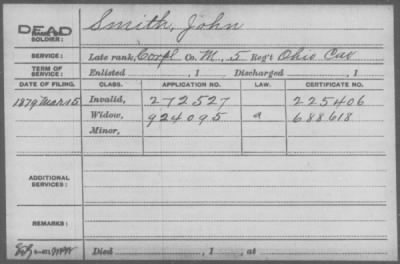 DEAD Smith, John
SOLDIER:
SERVICE: Late rank, Corpl Co. M, 5 Reg't Ohio Cav
TERM OF SERVICE: Enlisted , 1 Discharged , 1
DATE OF FILING. CLASS. APPLICATION NO. LAW. CERTIFICATE NO.
1879 Mar 15 Invalid, 272527 225406
Widow, 924095 a 688618
Minor,
ADDITIONAL SERVICES:
REMARKS:
Died , 1 , at